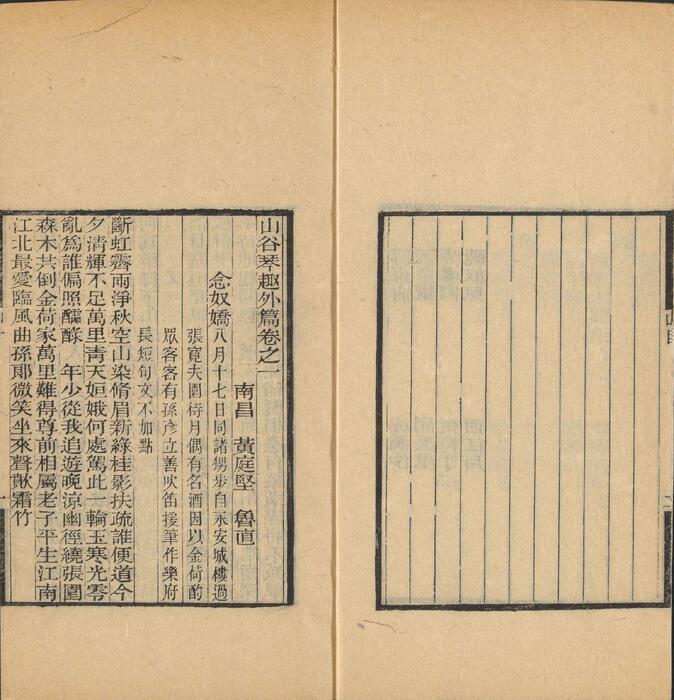 山谷琴趣外篇卷之一
南昌　黃庭堅　魯直
念奴嬌八月十七日同諸甥步自永安城樓過
張寬夫園待月偶有名酒因以金荷酌
眾客客有孫彥立善吹笛援筆作樂府
長短句文不加點
斷虹霽雨淨秋空山染脩眉新綠桂影扶疏誰便道今
夕清輝不足萬里青天姮娥何處駕此一輪玉寒光零
亂為誰偏照醽醁　年少從我追遊晚涼幽徑繞張園
森木共倒金荷家萬里難得尊前相屬老子平生江南
江北最愛臨風曲孫郎微笑坐來聲歕霜竹